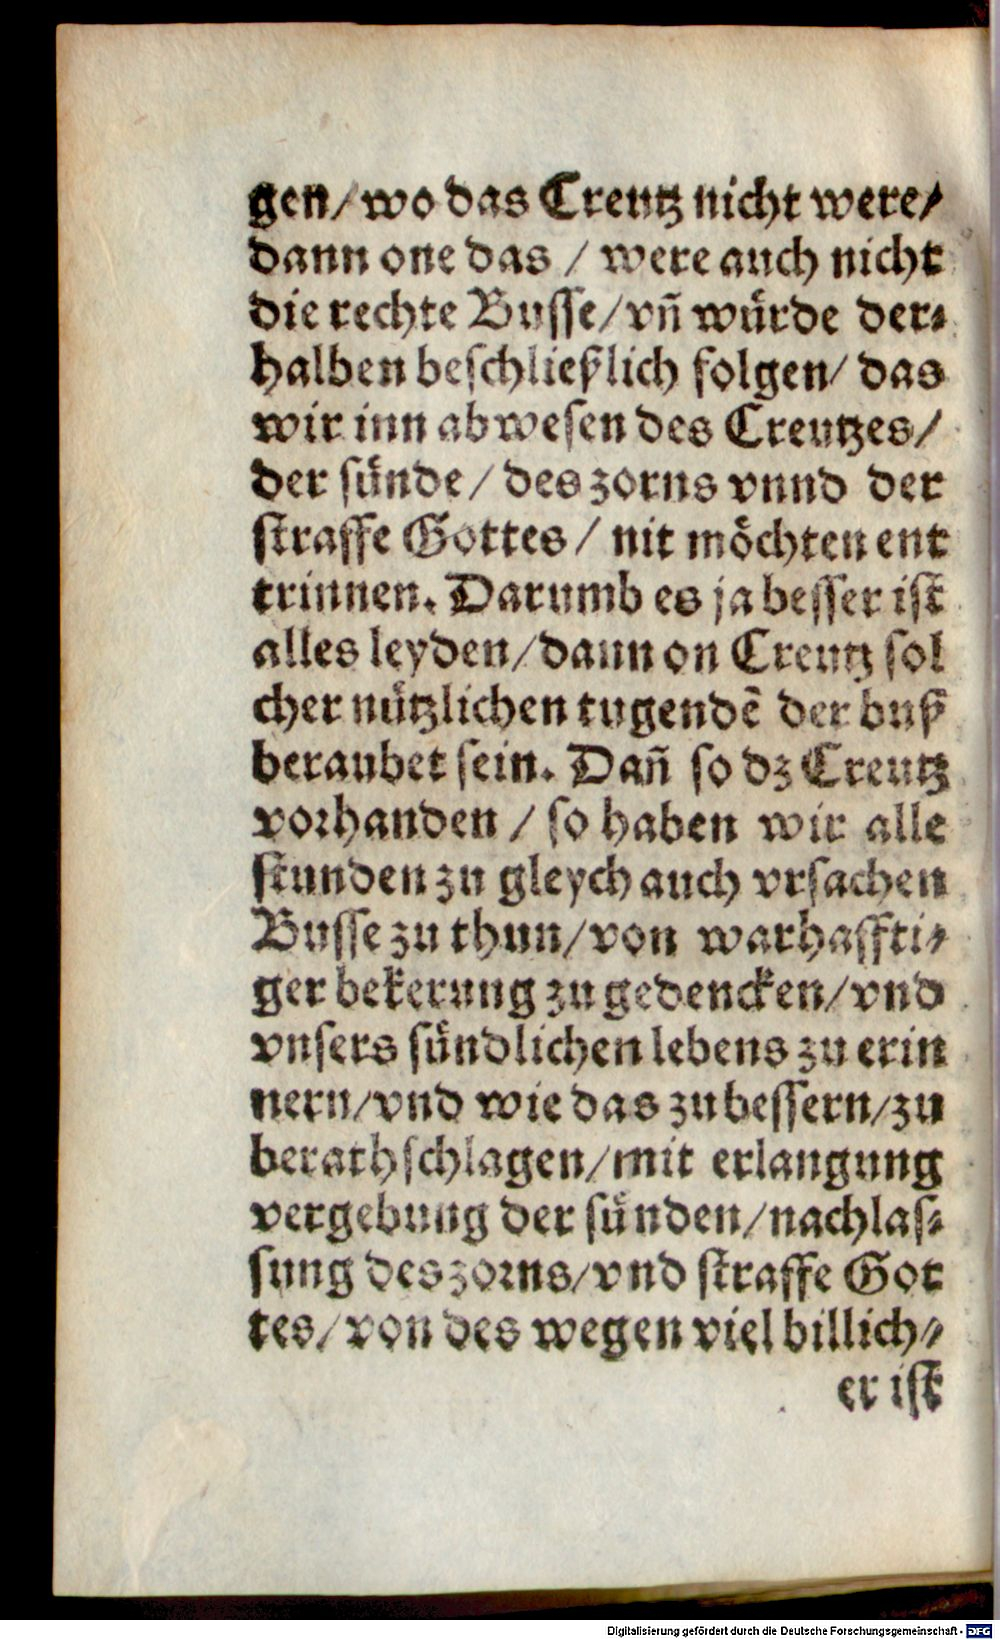 gen/wo das Creutz nicht were/
dann one das / were auch nicht
die rechte Busse/vn̄ würde der⸗
halben beschließlich folgen/ das
wir inn abwesen des Creutzes/
der sünde/ des zorns vnnd der
straffe Gottes/ nit möchten ent
trinnen. Darumb es ja besser ist
alles leyden/dann on Creutz sol
cher nützlichen tugendē der buß
beraubet sein. Dan̄ so dz Creutz
vorhanden / so haben wir alle
stunden zu gleych auch vrsachen
Busse zu thun/von warhaffti⸗
ger bekerung zu gedencken/vnd
vnsers sündlichen lebens zu erin
nern/vnd wie das zubessern/zu
berathschlagen/mit erlangung
vergebung der sünden/nachlas⸗
sung des zorns/vnd straffe Got
tes/von des wegen viel billich⸗
er ist
Digitalisierung gefördert durch die Deutsche Forschungsgemeinschaft - DFG